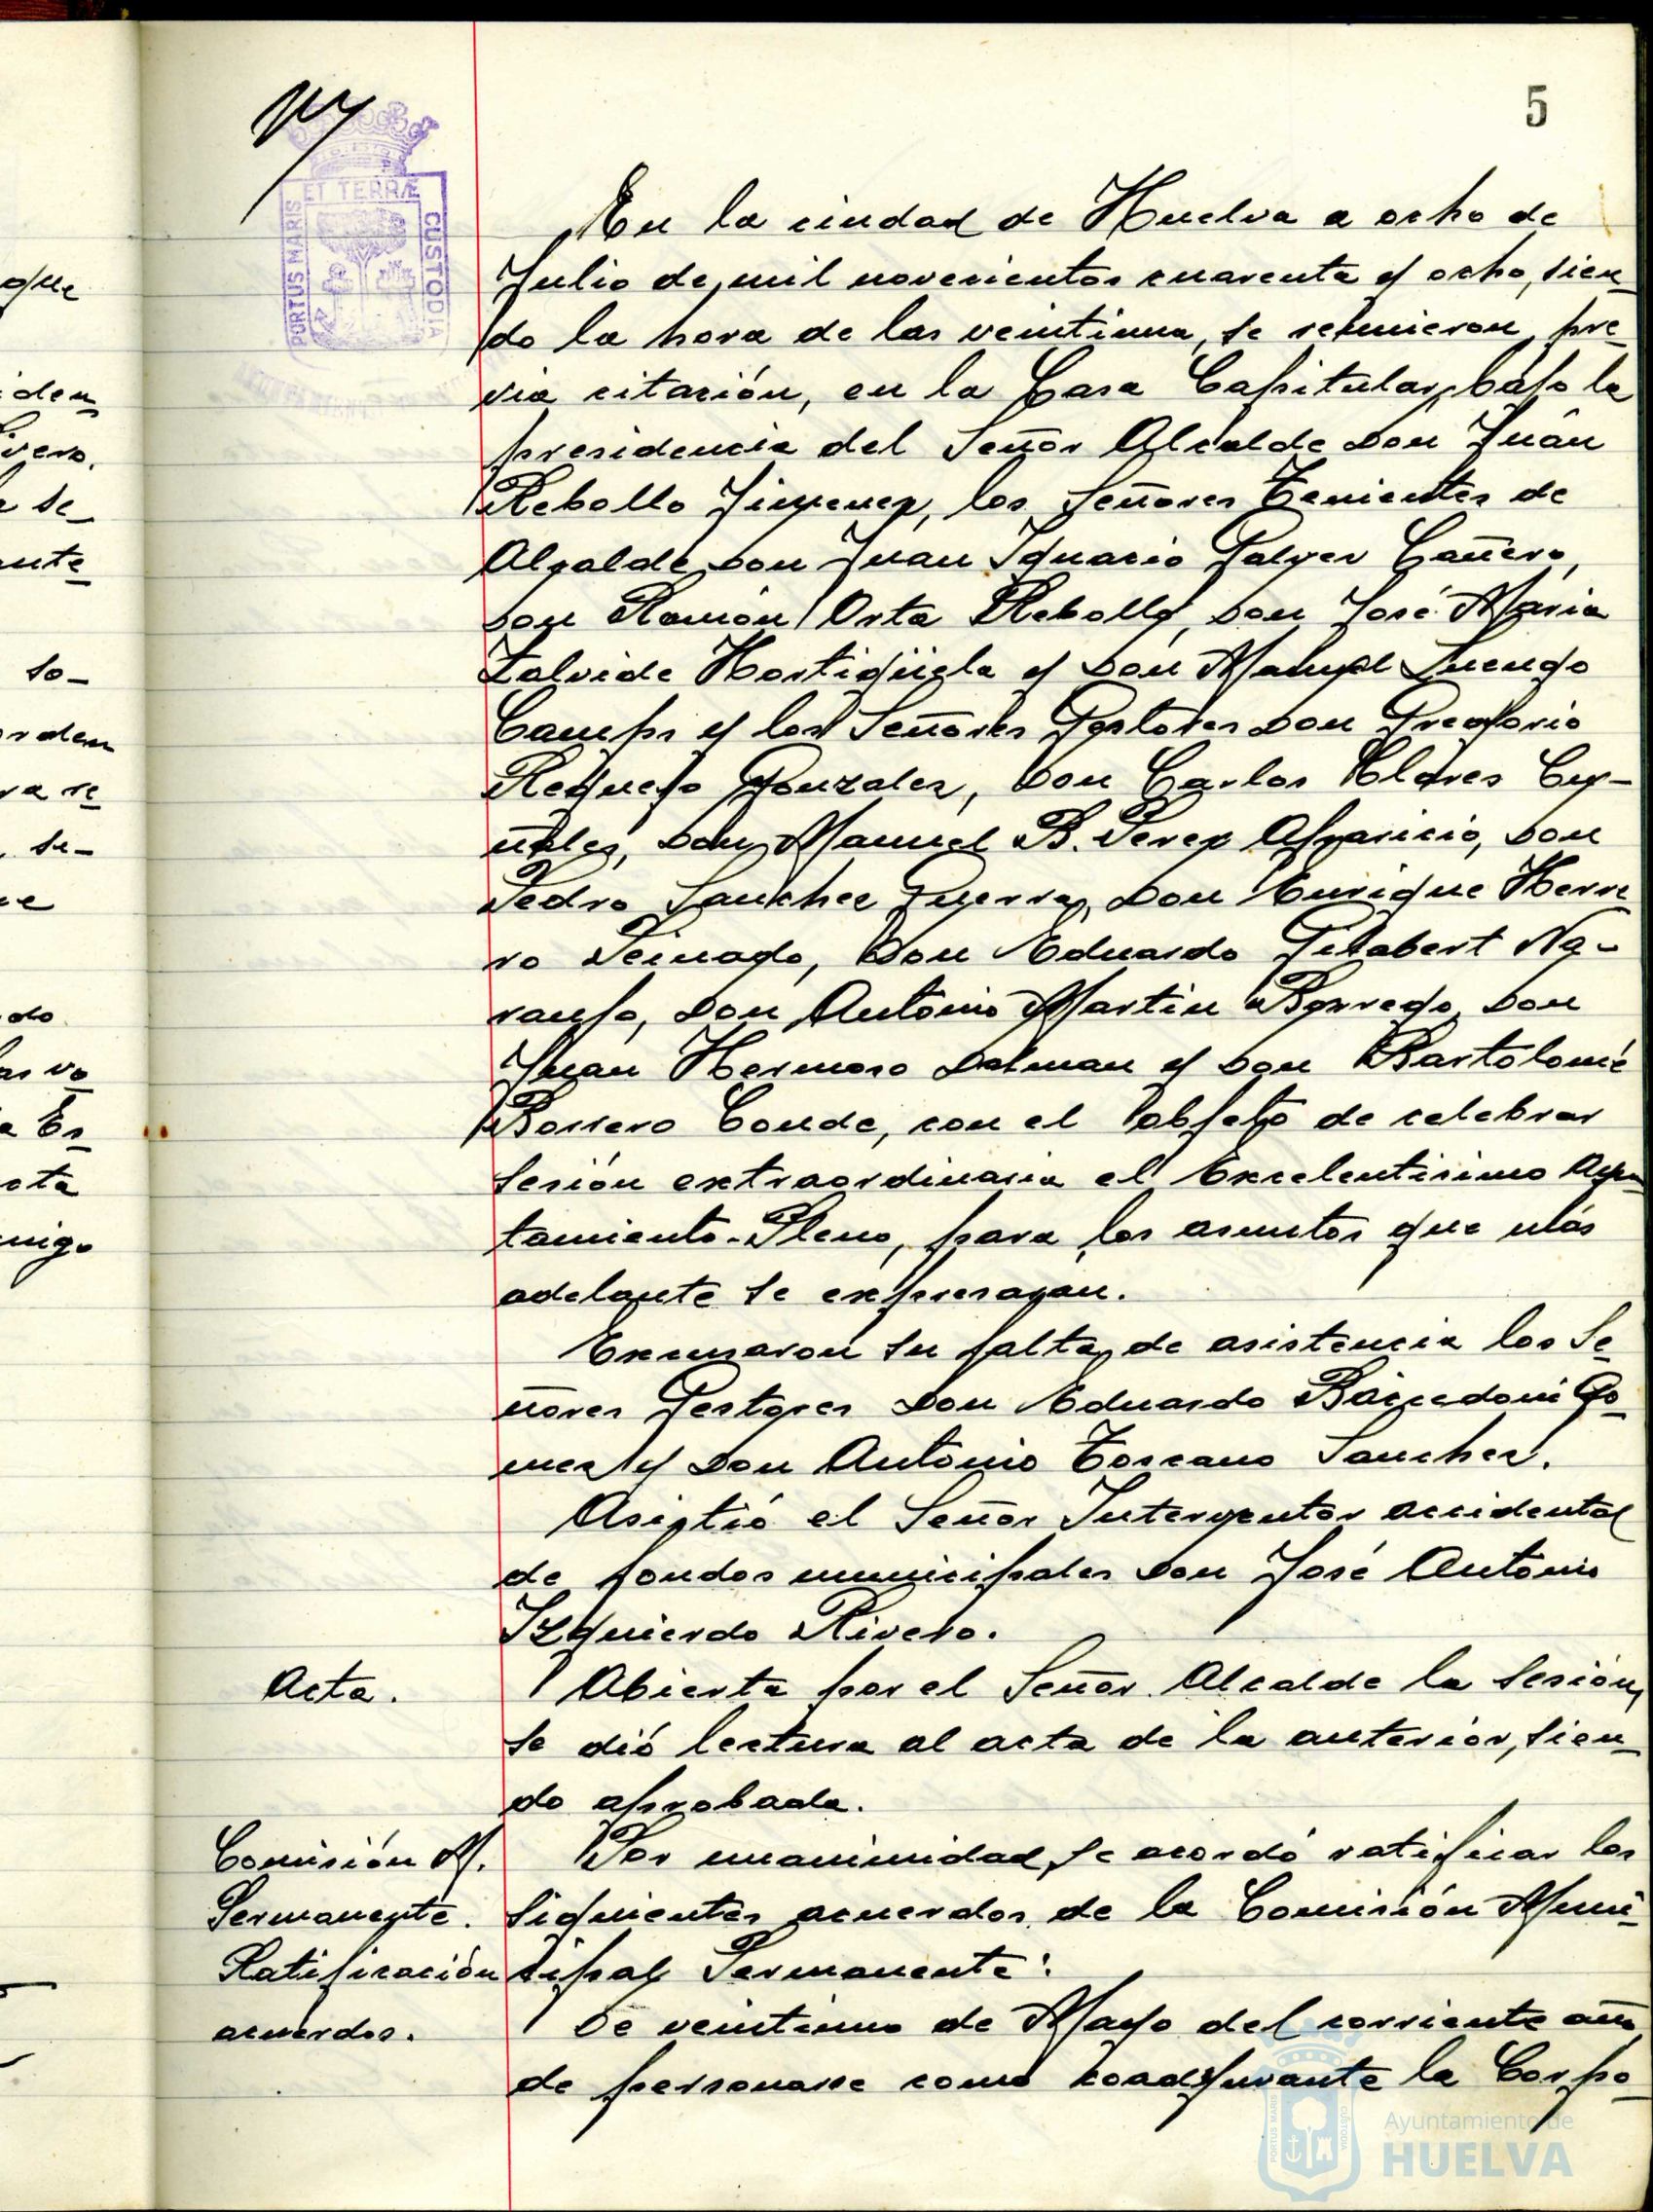 5
ET TERRÆ
PORTUS MARIS
CUSTODIA
En la ciudad de Huelva a ocho de
Julio de mil novecientos cuarenta y ocho, sien_
do la hora de las veintiuna, se reunieron, pre_
via citación, en la Casa Capitular, bajo la
presidencia del Señor Alcalde Don Juan
Rebollo Jimenez, los Señores Tenientes de
Alcalde Don Juan Ignacio Galvez Cañero,
Don Ramón Orta Rebollo, Don José María
Zalvide Hortigüela y Don Manuel Luengo
Camps y los Señores Gestores Don Gregorio
Requejo Gonzalez, Don Carlos Clares
Don Manuel B. Perez Aparicio, Don
Pedro Sanchez Guerra, Don Enrique Herre
ro Peinado, Don Eduardo Gilabert Na-
ranjo, Don Antonio Martin Borrego, Don
Juan Hermoso Dalman y Don Bartolomé
Borrero Conde, con el objeto de celebrar
sesión extraordinaria el Excelentisimo Ayun
tamiento-Pleno, para los asuntos que más
adelante se expresaran.
Excusaron su falta de asistencia los Se_
ñores Gestores Don Eduardo Go_
mez y Don Antonio Toscano Sanchez.
Asistió el Señor Interventor accidental
de fondos municipales Don José Antonio
Izquierdo Rivero.
Acta.
Abierta por el Señor Alcalde la sesión,
se dió lectura al acta de la anterior, sien_
do aprobada.
Comisión M.
Permanente.
Ratificación
acuerdos.
Por unanimidad, se acordó ratificar los
siguientes acuerdos de la Comisión Muni_
cipal Permanente:
De veintiuno de Mayo del corriente año
de personarse como coadyuvante la Corpo_
que
iden_
ivero.
se_
ante
so_
orden
va re
se_
do
ota
migo
Ayuntamiento de
HUELVA